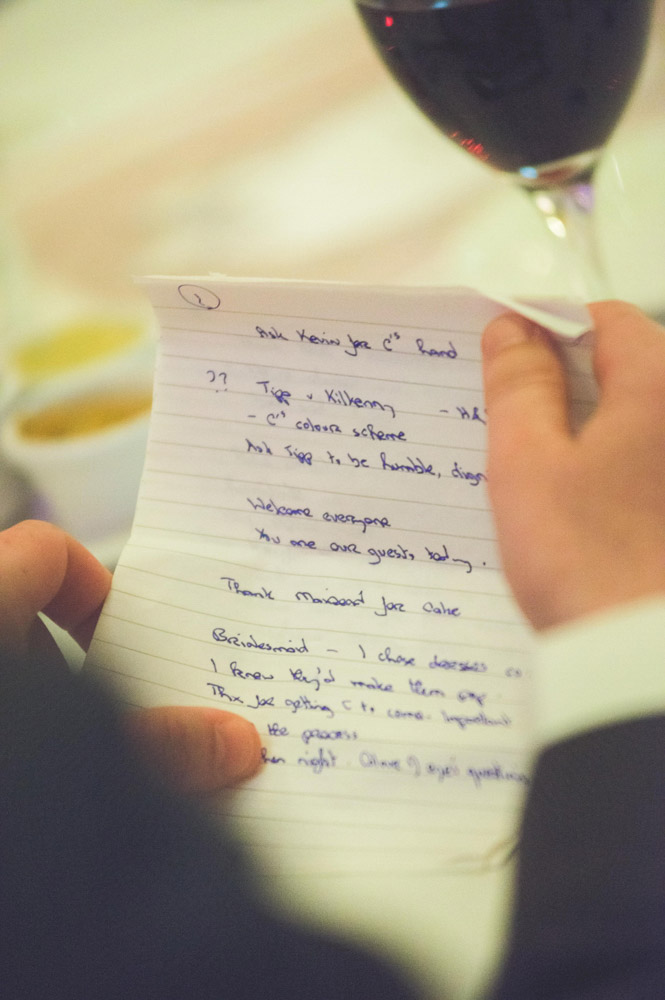 2
Ask Kevin for C's hand
?? Tipp v Kilkenny - H&
- C's colour scheme
Ask Tipp to be humble,
Welcome everyone
You are our guests today.
Thank for Cake
Bridesmaid - I chose dresses
I knew they'd make them
Thx for getting C to come. Important
the process
right.